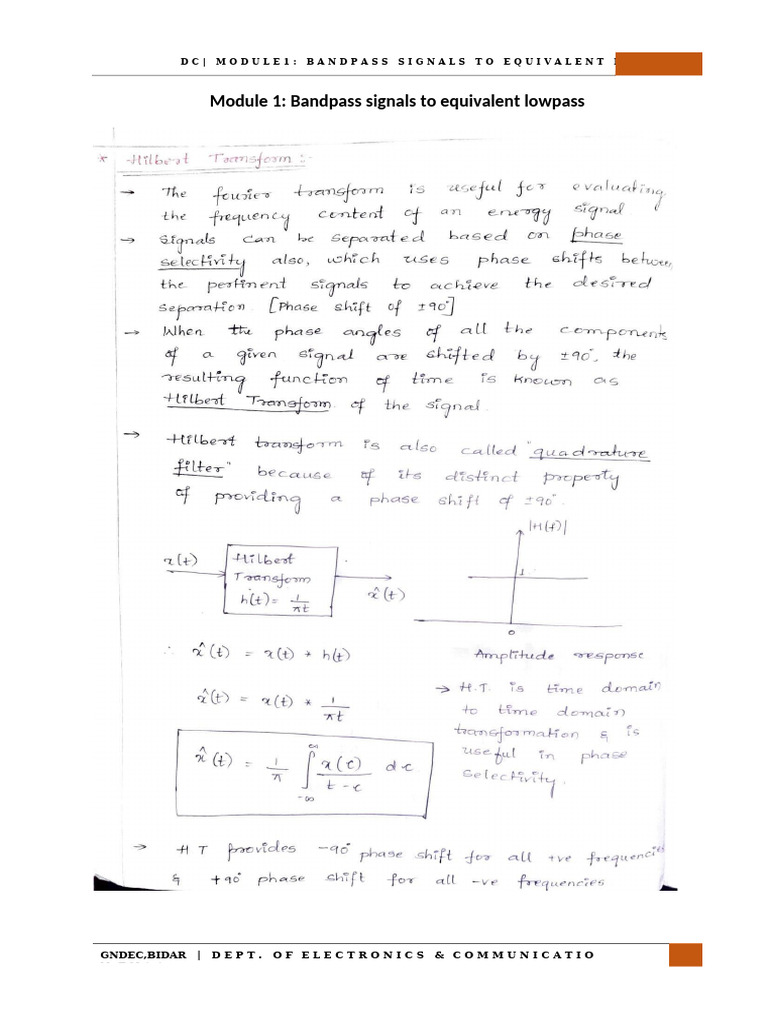 DC| MODULE1: BANDPASS SIGNALS TO EQUIVALENT
Module 1: Bandpass signals to equivalent lowpass
* Hilbert Transform :-
→ The fourier transform is useful for evaluating
the frequency content of an energy signal
→ Signals can be separated based on phase
selectivity also, which uses phase shifts between
the pertinent signals to achieve the desired
separation. [Phase shift of ±90°]
→ When the phase angles of all the components
of a given signal are shifted by ±90°, the
resulting function of time is known as
Hilbert Transform of the signal.
→ Hilbert transform is also called "quadrature
filter" because of its distinct property
of providing a phase shift of ±90°.
|H(f)|
x(t)
Hilbert
Transform
h(t) = 1/πt
x̂(t)
1
0
Amplitude response
∴ x̂(t) = x(t) * h(t)
x̂(t) = x(t) * 1/πt
x̂(t) = 1/π ∫_{-∞}^{∞} x(τ)/(t-τ) dτ
→ H.T. is time domain
to time domain
transformation & is
useful in phase
selectivity.
→ H T provides -90° phase shift for all +ve frequencies
& +90° phase shift for all -ve frequencies
GNDEC,BIDAR | DEPT. OF ELECTRONICS & COMMUNICATIO